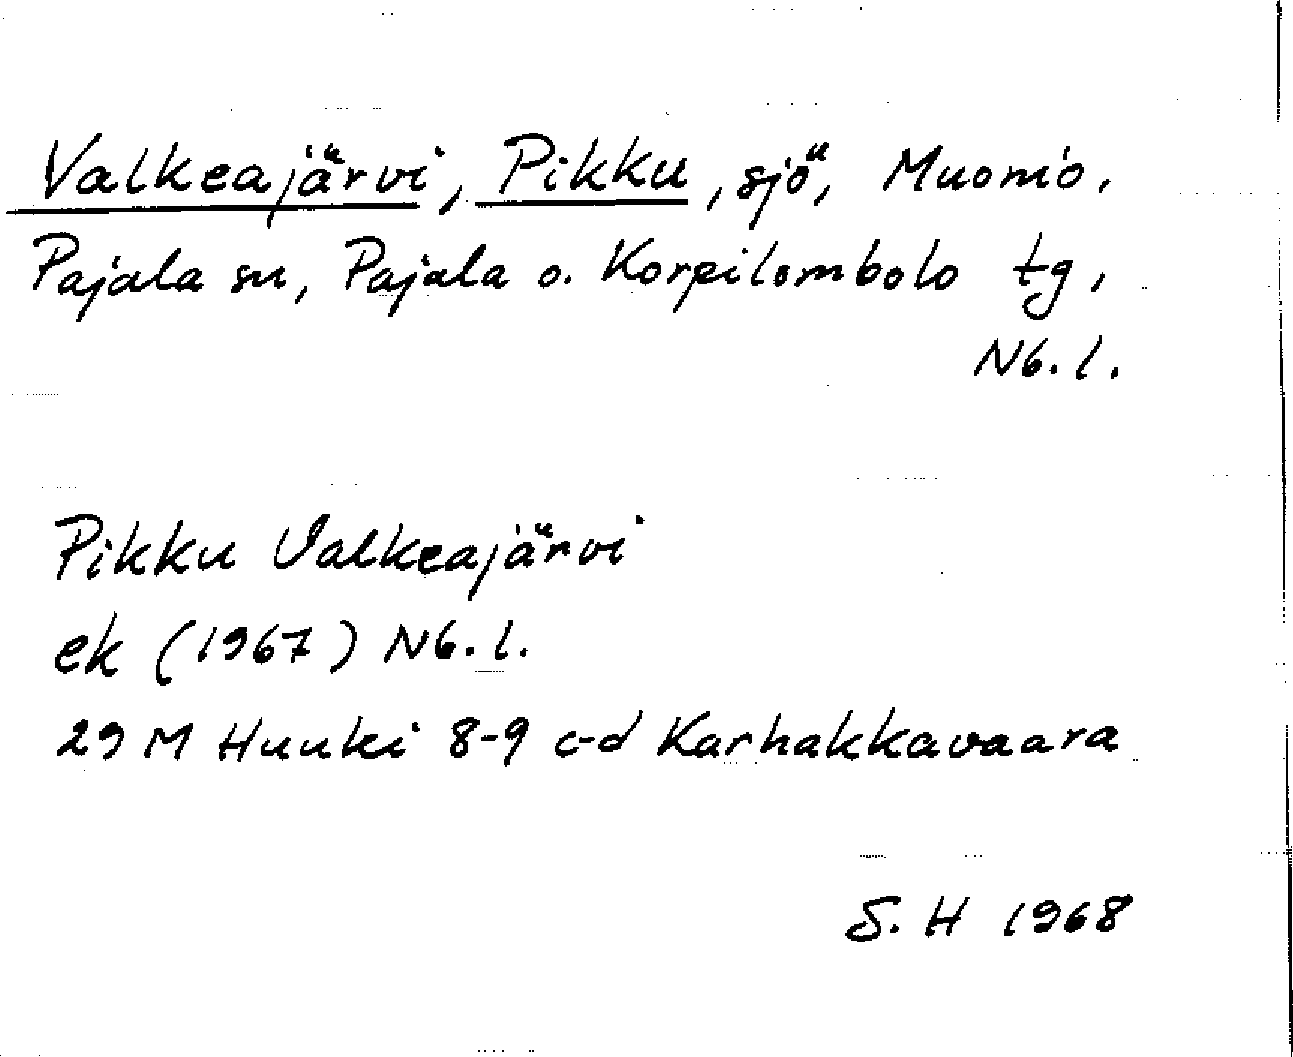 Valkeajärvi, Pikku, sjö, Muonio,
Pajala sn, Pajala o. Korpilombolo tg,
Nb. l.
Pikku Valkeajärvi
ek (1967) Nb. l.
29 M Huuki 8-9 c-d Karhakkavaara
S. H 1968